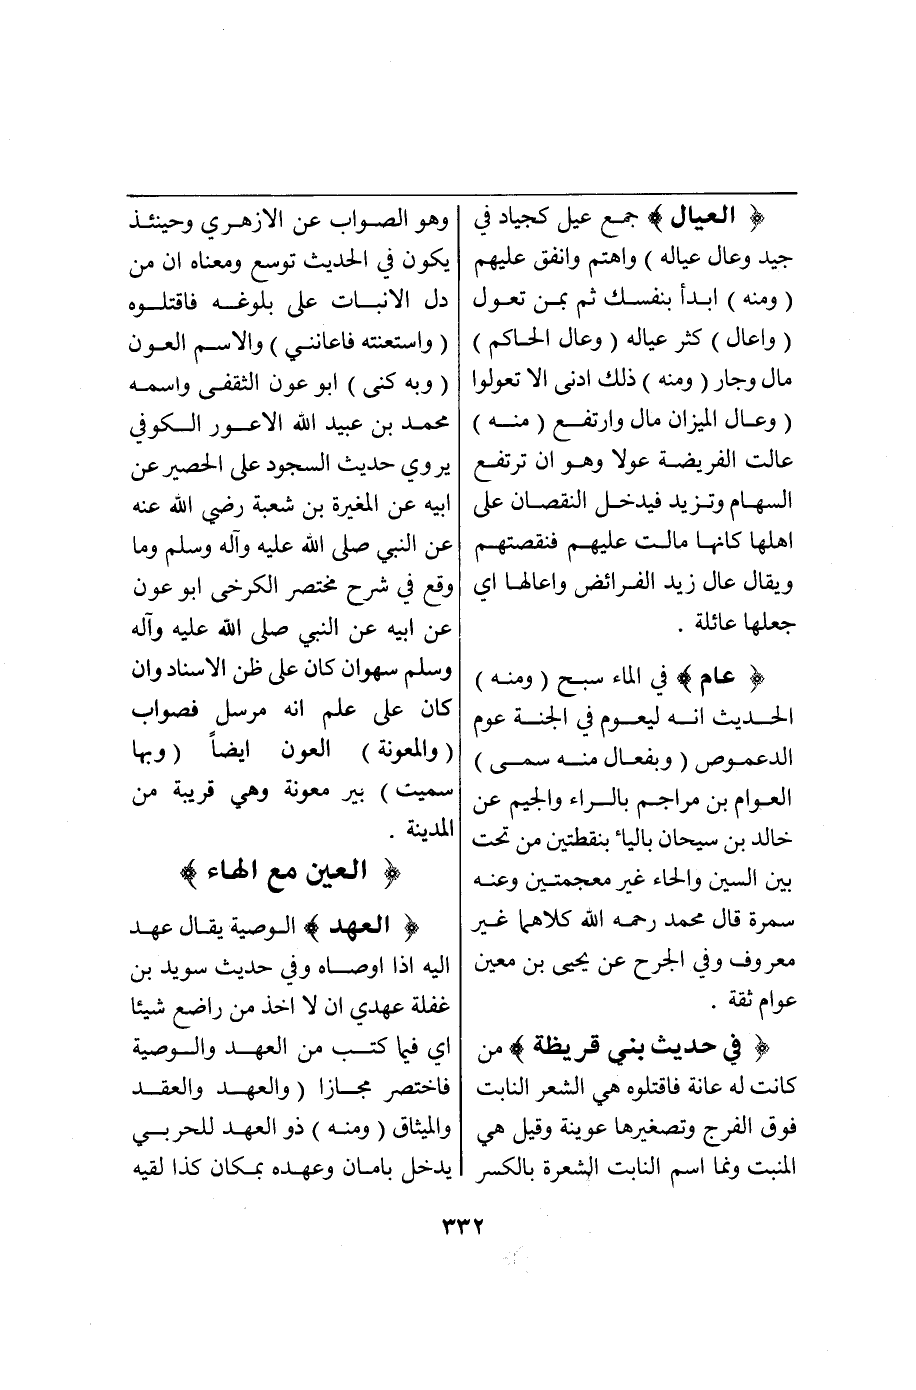 ﴿ العيال ﴾ جمع عيل كجياد في
جيد وعال عياله ) واهتم وانفق عليهم
( ومنه ) ابدأ بنفسك ثم بمن تعول
( واعال ) كثر عياله ( وعال الحاكم )
مال وجار ( ومنه ) ذلك ادنى الا تعولوا
( وعال الميزان مال وارتفع ( منه )
عالت الفريضة عولا وهو ان ترتفع
السهام وتزيد فيدخل النقصان على
اهلها كانها مالت عليهم فنقصتهم
ويقال عال زيد الفرائض واعالها اي
جعلها عائلة .
﴿ عام ﴾ في الماء سبح ( ومنه )
الحديث انه ليعوم في الجنة عوم
الدعموص ( وبفعال منه سمى )
العوام بن مراجم بالراء والجيم عن
خالد بن سيحان بالياء بنقطتين من تحت
بين السين والحاء غير معجمتين وعنه
سمرة قال محمد رحمه الله كلاهما غير
معروف وفي الجرح عن يحيى بن معين
عوام ثقة .
﴿ في حديث بني قريظة ﴾ من
كانت له عانة فاقتلوه هي الشعر النابت
فوق الفرج وتصغيرها عوينة وقيل هي
المنبت ونما اسم النابت الشعرة بالكسر
وهو الصواب عن الازهري وحينئذ
يكون في الحديث توسع ومعناه ان من
دل الانبات على بلوغه فاقتلوه
( واستعنته فاعانني ) والاسم العون
( وبه كنى ) ابو عون الثقفى واسمه
محمد بن عبيد الله الاعور الكوفي
يروي حديث السجود على الحصير عن
ابيه عن المغيرة بن شعبة رضي الله عنه
عن النبي صلى الله عليه وآله وسلم وما
وقع في شرح مختصر الكرخى ابو عون
عن ابيه عن النبي صلى الله عليه وآله
وسلم سهوان كان على ظن الاسناد وان
كان على علم انه مرسل فصواب
( والمعونة ) العون ايضاً ( وبها
سميت ) بير معونة وهي قريبة من
المدينة .
﴿ العين مع الهاء ﴾
﴿ العهد ﴾ الوصية يقال عهد
اليه اذا اوصاه وفي حديث سويد بن
غفلة عهدي ان لا اخذ من راضع شيئا
اي فيما كتب من العهد والوصية
فاختصر مجازا ( والعهد والعقد
والميثاق ( ومنه ) ذو العهد للحربي
يدخل بامان وعهده بمكان كذا لقيه
٣٣٢